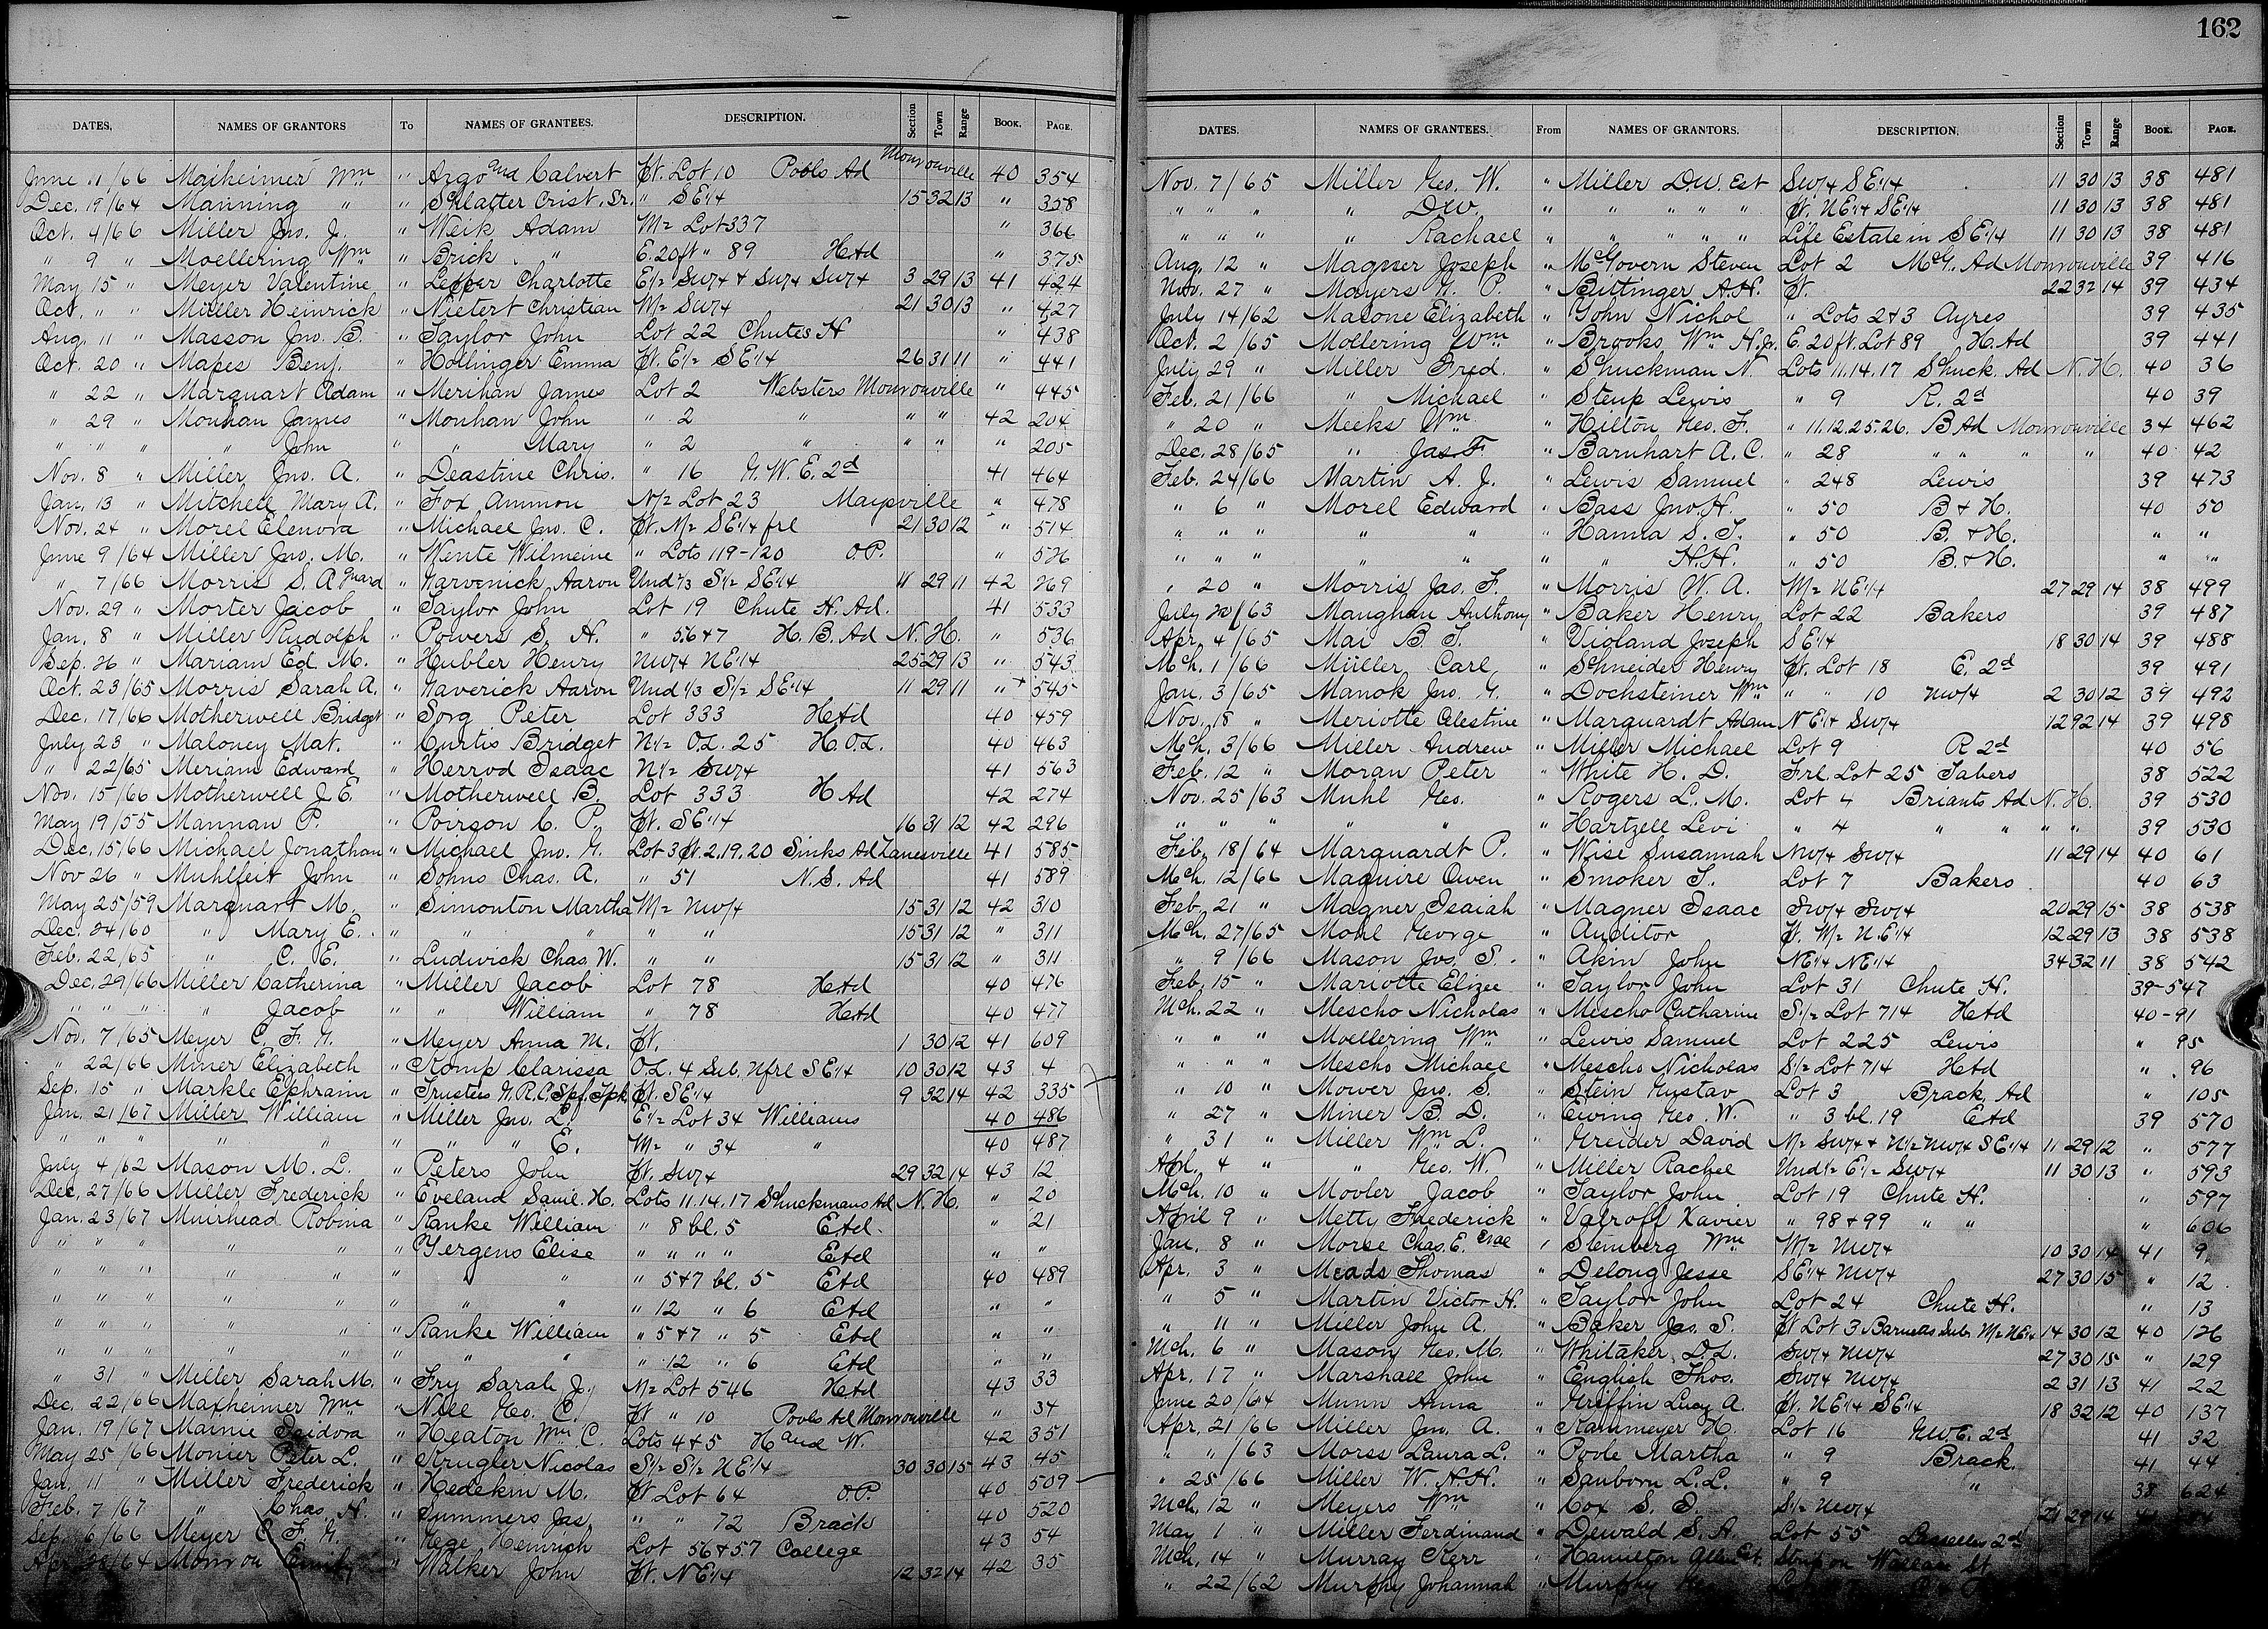 162
DATES. NAMES OF GRANTORS To NAMES OF GRANTEES. DESCRIPTION. Section Town Range BOOK. PAGE.
June 11/66 Maiheimer Wm " Argo and Calvert Pt. Lot 10 Pools Ad Monroeville 40 354
Dec. 19/64 Manning " " Schlatter Crist, Sr. " SE1/4 15 32 13 " 358
Oct. 4/66 Miller Jno. J. " Weik Adam W1/2 Lot 337 " 366
" 9 " Moellering Wm " Brick " E. 20 ft " 89 HAd " 375
May 15 " Meyer Valentine " Lepper Charlotte E1/2 SW1/4 & SW1/4 SW1/4 3 29 13 41 424
Oct. " " Müller Heinrick " Nietert Christian W1/2 SW1/4 21 30 13 " 427
Aug. 11 " Masson Jno. B. " Taylor John Lot 22 Chutes H " 438
Oct. 20 " Mapes Benj. " Hollinger Emma Pt. E1/2 SE1/4 26 31 11 " 441
" 22 " Marquart Adam " Merihan James Lot 2 Websters Monroeville " 445
" 29 " Monhan James " Monhan John " 2 " " " 42 204
" " " " John " " Mary " 2 " " " " 205
Nov. 8 " Miller Jno. A. " Deastine Chris. " 16 N. W. E. 2d 41 464
Jan. 13 " Mitchell Mary A. " Fox Ammon N1/2 Lot 23 Maysville " 478
Nov. 24 " Morel Elenora " Michael Jno. C. Pt. W1/2 SE1/4 frl 21 30 12 " 514
June 9/64 Miller Jno. M. " Wente Wilmeine " Lots 119-120 O.P. " 526
" 7/66 Morris S. A Guard " Narvenick Aaron Und 1/3 S1/2 SE1/4 11 29 11 42 269
Nov. 29 " Morter Jacob " Taylor John Lot 19 Chute H. Ad. 41 533
Jan. 8 " Miller Rudolph " Powers S. N. " 5.6 & 7 H. B. Ad N. H. " 536
Sep. 26 " Mariam Ed. M. " Hubler Henry NW1/4 NE1/4 25 29 13 " 543
Oct. 23/65 Morris Sarah A. " Naverick Aaron Und 1/3 S1/2 SE1/4 11 29 11 " 545
Dec. 17/66 Motherwell Bridget " Sorg Peter Lot 333 HAd 40 459
July 23 " Maloney Mat. " Curtis Bridget N1/2 O.L. 25 H.O.L. 40 463
" 22/65 Meriam Edward " Herrod Isaac N1/2 SW1/4 41 563
Nov. 15/66 Motherwell J. E. " Motherwell B. Lot 333 H Ad 42 274
May 19/55 Mannan P. " Poirson C. P. Pt. SE1/4 16 31 12 42 296
Dec. 15/66 Michael Jonathan " Michael Jno. G. Lot 3 Pt. 2.19.20 Sinks Ad Zanesville 41 585
Nov 26 " Muhlfeit John " Sohns Chas. A. " 51 N. S. Ad 41 589
May 25/59 Marquart M. " Simonton Martha W1/2 NW1/4 15 31 12 42 310
Dec. 24/60 " Mary E. " " " " " 15 31 12 " 311
Feb. 22/65 " C. E. " Ludwick Chas. W. " " 15 31 12 " 311
Dec. 29/66 Miller Catherina " Miller Jacob Lot 78 HAd 40 476
" " " " Jacob " " William " 78 HAd 40 477
Nov. 7/65 Meyer C. F. G. " Meyer Anna M. Pt. 1 30 12 41 609
" 22/66 Miner Elizabeth " Komp Clarissa O.L. 4 Sub. Nfrl SE1/4 10 30 12 43 4
Sep. 15 " Markle Ephraim " Trustees G.R.C. Spf. Tpk Pt. SE1/4 9 32 14 42 335
Jan. 21/67 Miller William " Miller Jno. L. E1/2 Lot 34 Williams 40 486
" " " " " " " " E. W1/2 " 34 " 40 487
July 4/62 Mason M. L. " Peters John Pt. SW1/4 29 32 14 43 12
Dec. 27/66 Miller Frederick " Eveland Saml. H. Lots 11.14.17 Schuckmans Ad N. H. " 20
Jan. 23/67 Muirhead Robina " Ranke William " 8 bl. 5 EAd. " 21
" " " " " " Yergens Elise " " " " EAd " "
" " " " " " " " " 5 & 7 bl. 5 EAd 40 489
" " " " " " " " " 12 " 6 EAd " "
" " " " " " Ranke William " 5 & 7 " 5 EAd " "
" " " " " " " " " 12 " 6 EAd " "
" 31 " Miller Sarah M. " Fry Sarah J. W1/2 Lot 546 HAd 43 33
Dec. 22/66 Maxheimer Wm " Nill Geo. C. Pt " 10 Pools Ad Monroeville " 34
Jan. 19/67 Mainie Isidora " Heaton Wm C. Lots 4 & 5 H and W. 42 351
May 25/66 Monier Peter L. " Krugler Nicolas S1/2 S1/2 NE1/4 30 30 15 43 45
Jan. 11 " Miller Frederick " Hedekin M. Pt Lot 64 O.P. 40 509
Feb. 7/67 " Chas. H. " Summers Jas. " " 72 Brack 40 520
Sep. 6/66 Meyer C. F. G. " Hege Heinrich Lot 56 & 57 College 43 54
Apr. 28/64 Monroe " Walker John Pt. NE1/4 12 32 14 42 35
DATES. NAMES OF GRANTEES. From NAMES OF GRANTORS. DESCRIPTION. Section Town Range BOOK. PAGE.
Nov. 7/65 Miller Geo. W. " Miller D.W. Est SW1/4 SE1/4 11 30 13 38 481
" " " " D W " " " " " Pt. NE1/4 SE1/4 11 30 13 38 481
" " " " Rachael " " " " " Life Estate in SE1/4 11 30 13 38 481
Aug. 12 " Magner Joseph " McGovern Steven Lot 2 McG. Ad Monroeville 39 416
Nov. 27 " Mayers G. P. " Bittinger A.H. Pt. 22 32 14 39 434
July 14/62 Masone Elizabeth " John Nichol " Lots 2 & 3 Ayres 39 435
Oct. 2/65 Mollering Wm " Brooks Wm H. Jr. E. 20 ft. Lot 89 H. Ad 39 441
July 29 " Miller Fred. " Schuckman N. Lots 11.14.17 Schuck. Ad N. H. 40 36
Feb. 21/66 " Michael " Steup Lewis " 9 R. 2d 40 39
" 20 " Meeks Wm " Hilton Geo. F. " 11.12.25.26. B Ad Monroeville 34 462
Dec. 28/65 " Jas. F. " Barnhart A. C. " 28 " " " " 40 42
Feb. 24/66 Martin A. J. " Lewis Samuel " 248 Lewis 39 473
" 6 " Morel Edward " Bass Jno. H. " 50 B & H. 40 50
" " " " " " Hanna S. T. " 50 B. & H. " "
" " " " " " " H.H. " 50 B. & H. " "
" 20 " Morris Jas. F. " Morris W. A. W1/2 NE1/4 27 29 14 38 499
July 20/63 Manghan Anthony " Baker Henry Lot 22 Bakers 39 487
Apr. 4/65 Mai B. T. " Violand Joseph SE1/4 18 30 14 39 488
Mch. 1/66 Müller Carl " Schneider Henry Pt. Lot 18 E. 2d 39 491
Jan. 3/65 Manok Jno. G. " Dochsteiner Wm " " 10 NW1/4 2 30 12 39 492
Nov. 18 " Meriotte Celestine " Marquardt Adam NE1/4 SW1/4 12 92 14 39 498
Mch. 3/66 Miller Andrew " Miller Michael Lot 9 R 2d 40 56
Feb. 12 " Moran Peter " White H. D. Frl. Lot 25 Tabers 38 522
Nov. 25/63 Muhl Geo. " Rogers L. M. Lot 4 Briants Ad N. H. 39 530
" " " " " " Hartzell Levi " 4 " " " " 39 530
Feb. 18/64 Marquardt P. " Wise Susannah NW1/4 SW1/4 11 29 14 40 61
Mch. 12/66 Maquire Owen " Smoker J. Lot 7 Bakers 40 63
Feb. 21 " Magner Isaiah " Magner Isaac SW1/4 SW1/4 20 29 15 38 538
Mch. 27/65 Mohl George " Auditor Pt. W1/2 N.E1/4 12 29 13 38 538
" 9/66 Mason Jos. S. " Akin John NE1/4 NE1/4 34 32 11 38 542
Feb. 15 " Mariotte Elizee " Taylor John Lot 31 Chute H. 39-547
Mch. 22 " Mescho Nicholas " Mescho Catharine S1/2 Lot 714 HAd 40-91
" " " Moellering Wm " Lewis Samuel Lot 225 Lewis " 95
" " " Mescho Michael " Mescho Nicholas S1/2 Lot 714 HAd " 96
" 10 " Mower Jno. S. " Stein Gustav Lot 3 Brack. Ad " 105
" 27 " Miner B. D. " Ewing Geo. W. " 3 bl. 19 EAd 39 570
" 31 " Miller Wm L. " Greider David W1/2 SW1/4 & N1/2 NW1/4 SE1/4 11 29 12 " 577
Apl. 4 " " Geo. W. " Miller Rachel Und 1/2 E1/2 SW1/4 11 30 13 " 593
Mch. 10 " Movler Jacob " Taylor John Lot 19 Chute H. " 597
April 9 " Metty Frederick " Valroff Xavier " 98 & 99 " " " 606
Jan. 8 " Morse Chas. E. et al " Steinberg Wm W1/2 NW1/4 10 30 14 41 9
Apr. 3 " Meads Thomas " Delong Jesse SE1/4 NW1/4 27 30 15 " 12
" 5 " Martin Victor H. " Taylor John Lot 24 Chute H. " 13
" 11 " Miller John A. " Baker Jas. S. Pt Lot 3 Barnetts Sub. W1/2 NE1/4 14 30 12 40 126
Mch. 6 " Mason Geo. M. " Whitaker, D.L. SW1/4 NW1/4 27 30 15 " 129
Apr. 17 " Marshall John " English Thos. SW1/4 NW1/4 2 31 13 41 22
June 20/64 Munn Anna " Griffin Lucy A. Pt. NE1/4 SE1/4 18 32 12 40 137
Apr. 21/66 Miller Jno. A. " Kammeyer H. Lot 16 N.W.E. 2d 41 32
" " /63 Morss Laura L. " Poole Martha " 9 Brack. 41 44
" 25/66 Miller W. H.H. " Sanborn L.L. " 9 " 38 624
Mch. 12 " Meyers Wm " Cox S. S. S1/2 NW1/4 21 29 14
May 1 " Miller Ferdinand " Dewald S. A. Lot 55 Lasselles 2d
Mch. 14 " Murray Kerr " Hamilton Allen Est. Strip on Wallace St.
" 22/62 Murphy Johannah " Murphy